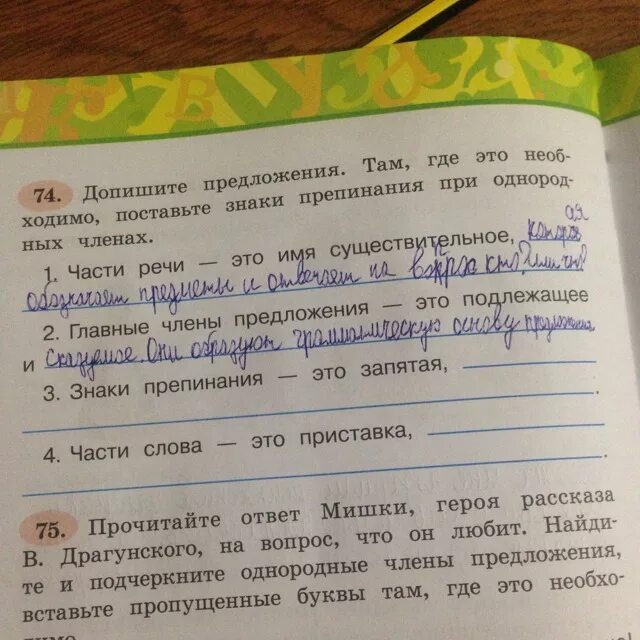 74. Допишите предложения. Там, где это необ-
ходимо, поставьте знаки препинания при однород-
ных членах.
1. Части речи — это имя существительное, которая
обозначает предметы и отвечает на вопрос кто? или что?
2. Главные члены предложения — это подлежащее
и сказуемое. Они образуют грамматическую основу предложения
3. Знаки препинания — это запятая,
4. Части слова — это приставка,
75. Прочитайте ответ Мишки, героя рассказа
В. Драгунского, на вопрос, что он любит. Найди-
те и подчеркните однородные члены предложения,
вставьте пропущенные буквы там, где это необхо-